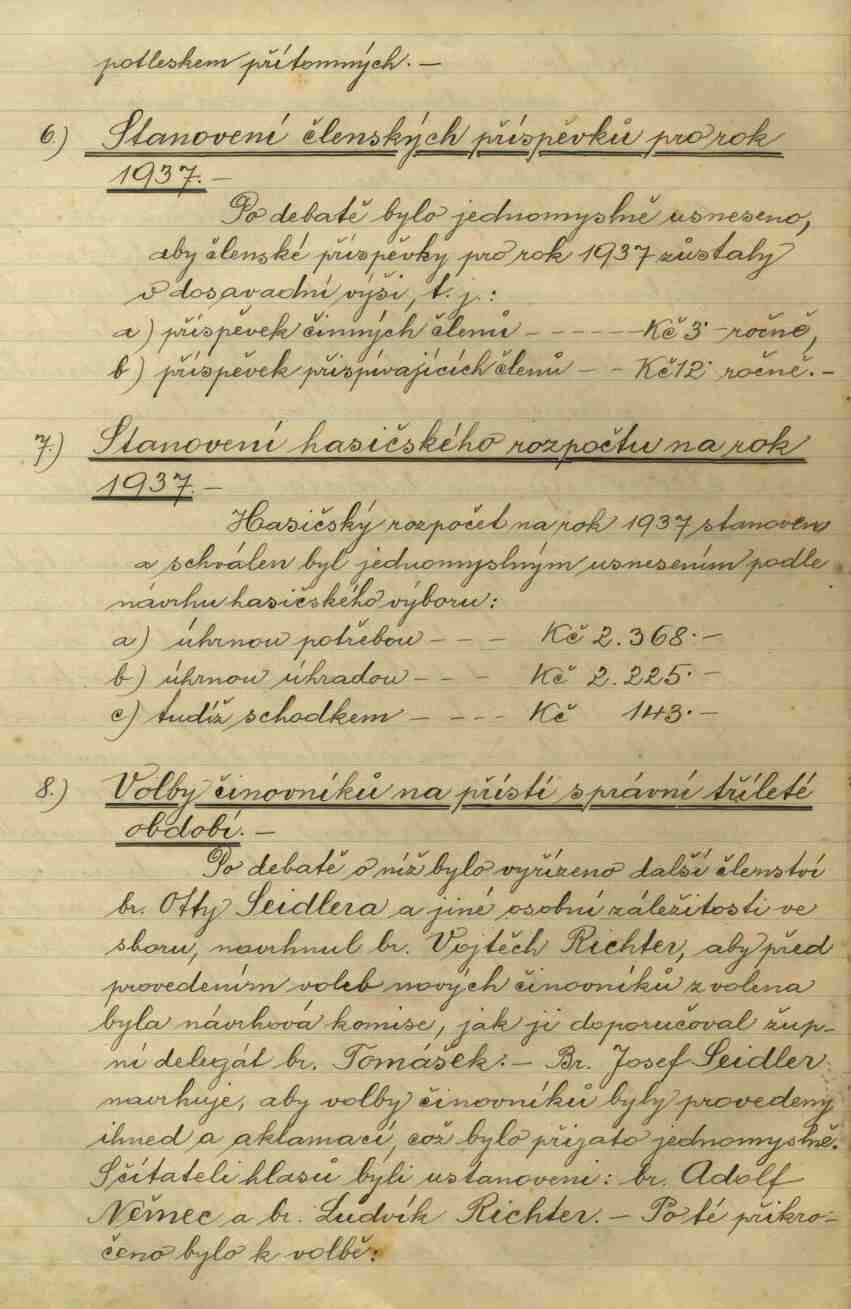 potleskem přítomných. —
6.) Stanovení členských příspěvků pro rok
1937. —
Po debatě bylo jednomyslně usneseno,
aby členské příspěvky pro rok 1937 zůstaly
v dosavadní výši, t. j.:
a) příspěvek činných členů - - - - - - Kč 3·- ročně,
b) příspěvek přispívajících členů - - Kč 12· ročně. -
7.) Stanovení hasičského rozpočtu na rok
1937. —
Hasičský rozpočet na rok 1937 stanoven
a schválen byl jednomyslným usnesením podle
návrhu hasičského výboru:
a) úhrnou potřebou - - - Kč 2.368·-
b) úhrnou úhradou - - - Kč 2.225·-
c) tudíž schodkem - - - - Kč 143·-
8.) Volby činovníků na příští správní tříleté
období. —
Po debatě o níž bylo vyřízeno další členství
br. Otty Seidlera a jiné osobní záležitosti ve
sboru, navrhnul br. Vojtěch Richter, aby před
provedením voleb nových činovníků zvolena
byla návrhová komise, jak ji doporučoval žup-
ní delegát br. Tomášek. — Br. Josef Seidler
navrhuje, aby volby činovníků byly provedeny
ihned a aklamací, což bylo přijato jednomyslně.
Sčítateli hlasů byli ustanoveni: br. Adolf
Němec a br. Ludvík Richter. — Po té přikro-
čeno bylo k volbě: